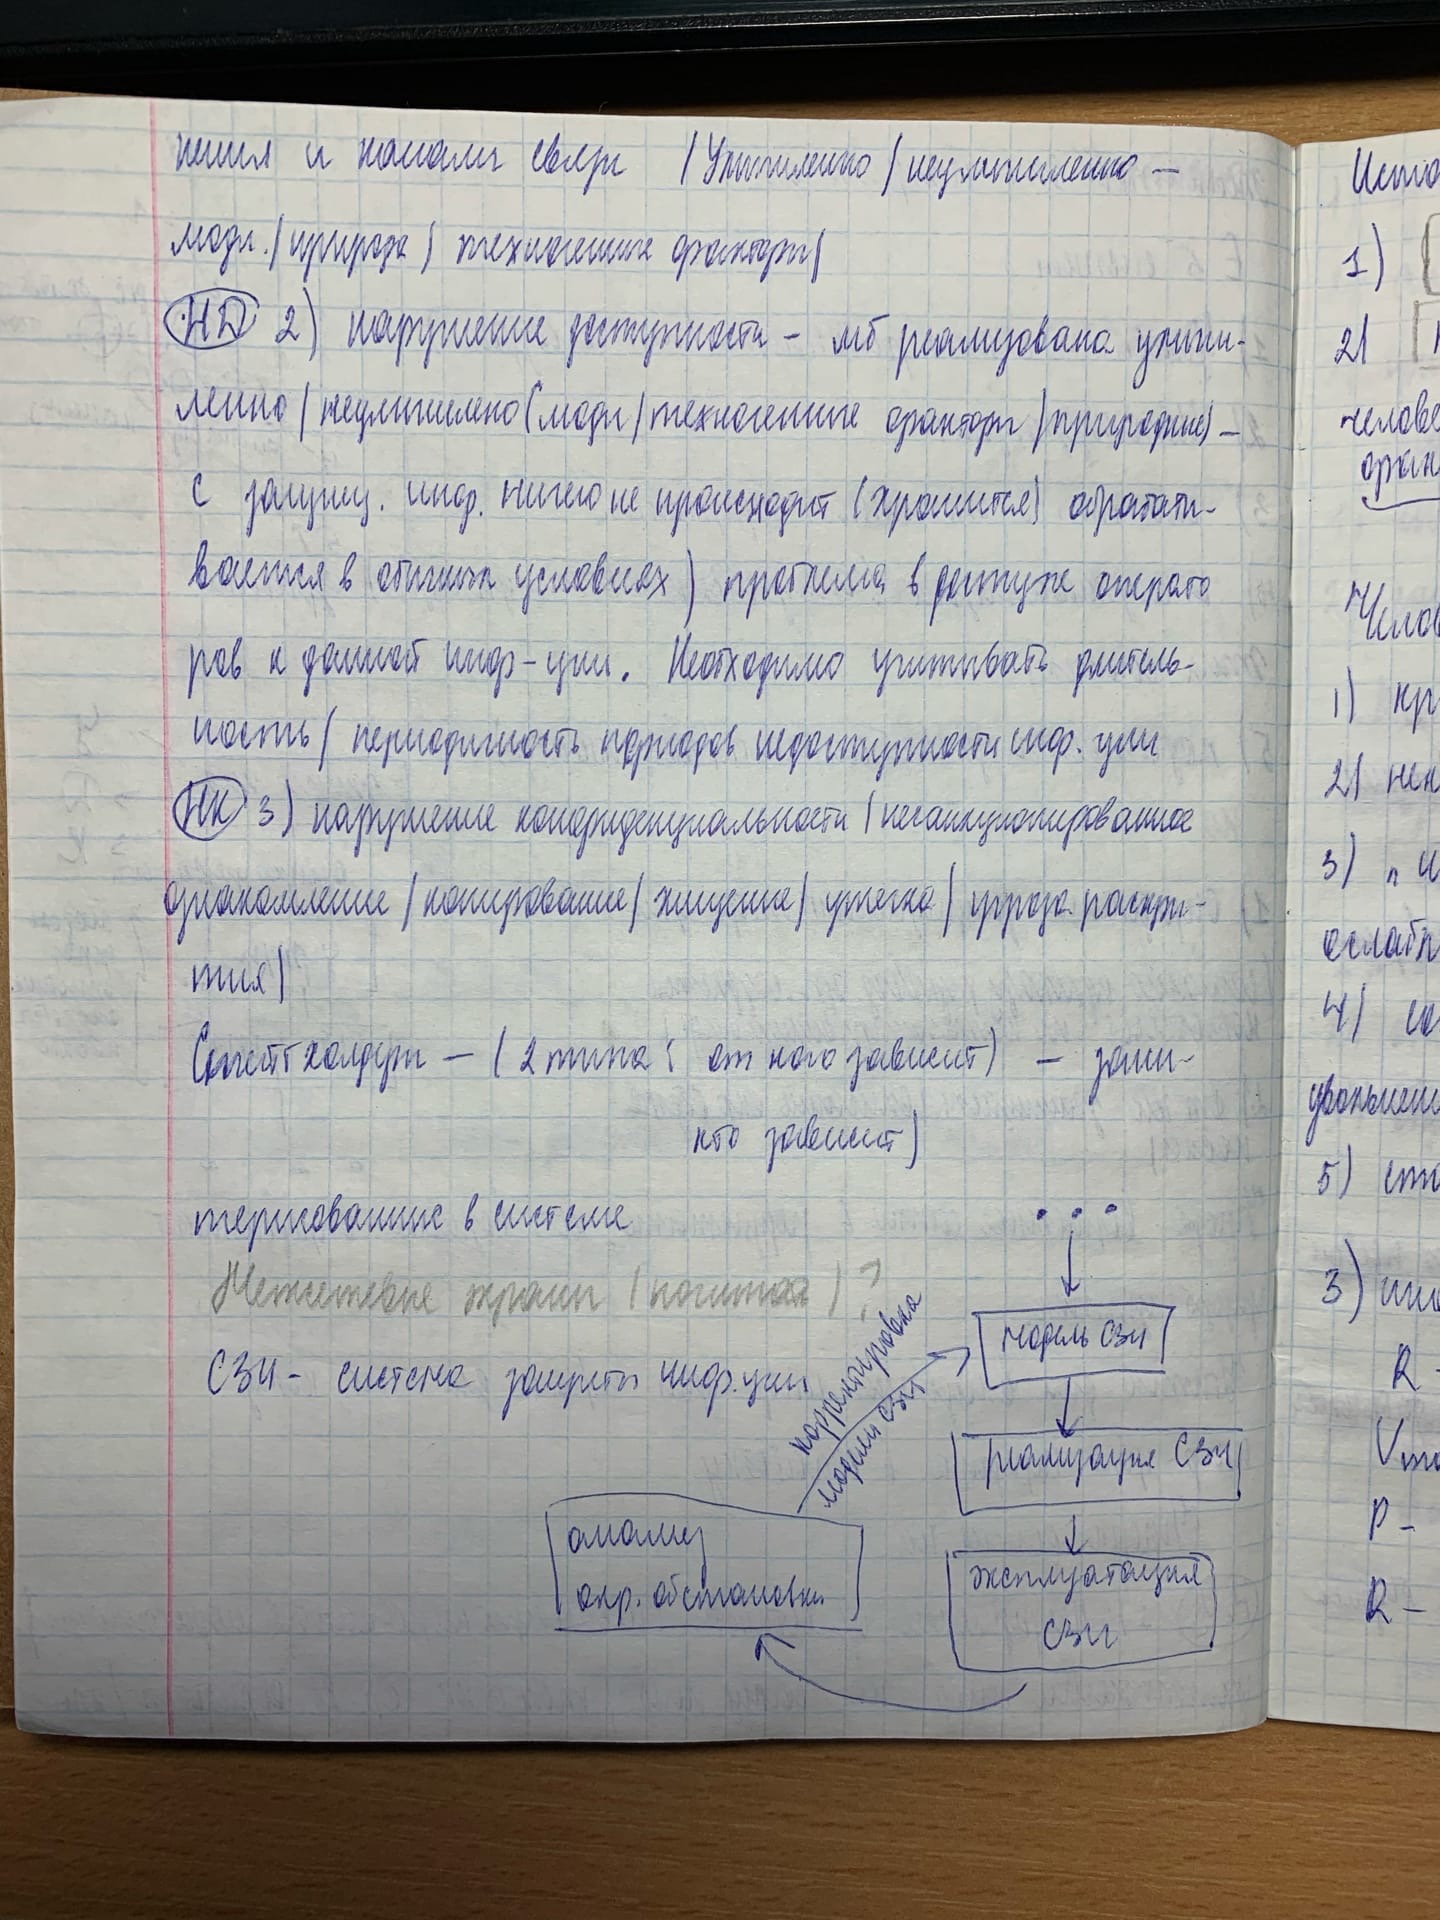 нения и каналы связи (Умышленно/неумышленно –
люди/природа/техногенные факторы)
НД 2) нарушение доступности – мб реализована умыш-
ленно/неумышлено (люди/техногенные факторы/природные) –
с защищ. инф. ничего не происходит (хранится) обрабаты-
вается в обычных условиях) проблема в доступе операто
ров к данной инф-ции. Необходимо учитывать длитель-
ность/периодичность периодов недоступности инф.ции
НК 3) нарушение конфиденциальности (несанкционированное
ознакомление/копирование/хищение/утечка/угроза раскры-
тия)
Стейтхолдеры – (2 типа: от кого зависит) – заин-
кто зависит)
тересованные в системе
Межсетевые экраны (почитать)?
СЗИ – система защиты инф.ции
...
модель СЗИ
корректировка
модели СЗИ
реализация СЗИ
анализ
окр. обстановки
эксплуатация
СЗИ
1)
2)
человe
1) кр
2) нек
3) "и
ослаб
4) со
5) ста
3) инф
R -
P -
R -